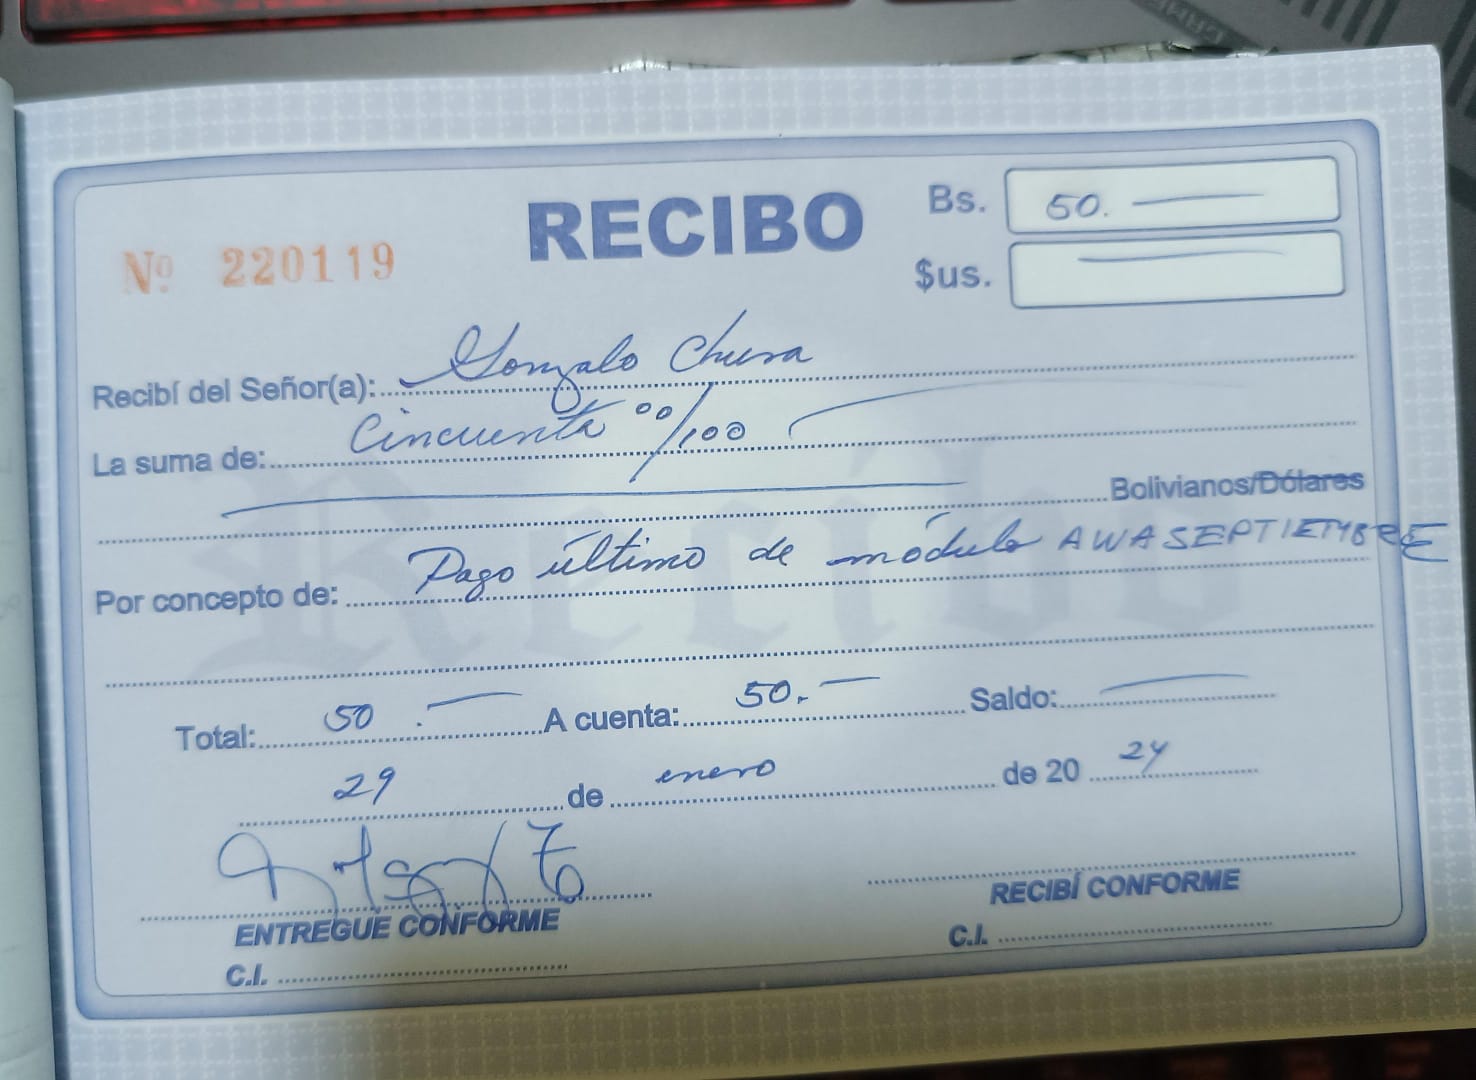 RECIBO
Bs. 50.
Nº 220119
$us.
Recibí del Señor(a): Gonzalo Chura
La suma de: Cincuenta 00/100
Bolivianos/Dólares
Por concepto de: Pago último de módulo AWASEPTIEMBRE
Total: 50.- A cuenta: 50.- Saldo:
29 de enero de 20 24
ENTREGUE CONFORME
RECIBÍ CONFORME
C.I.
C.I.
Recibo